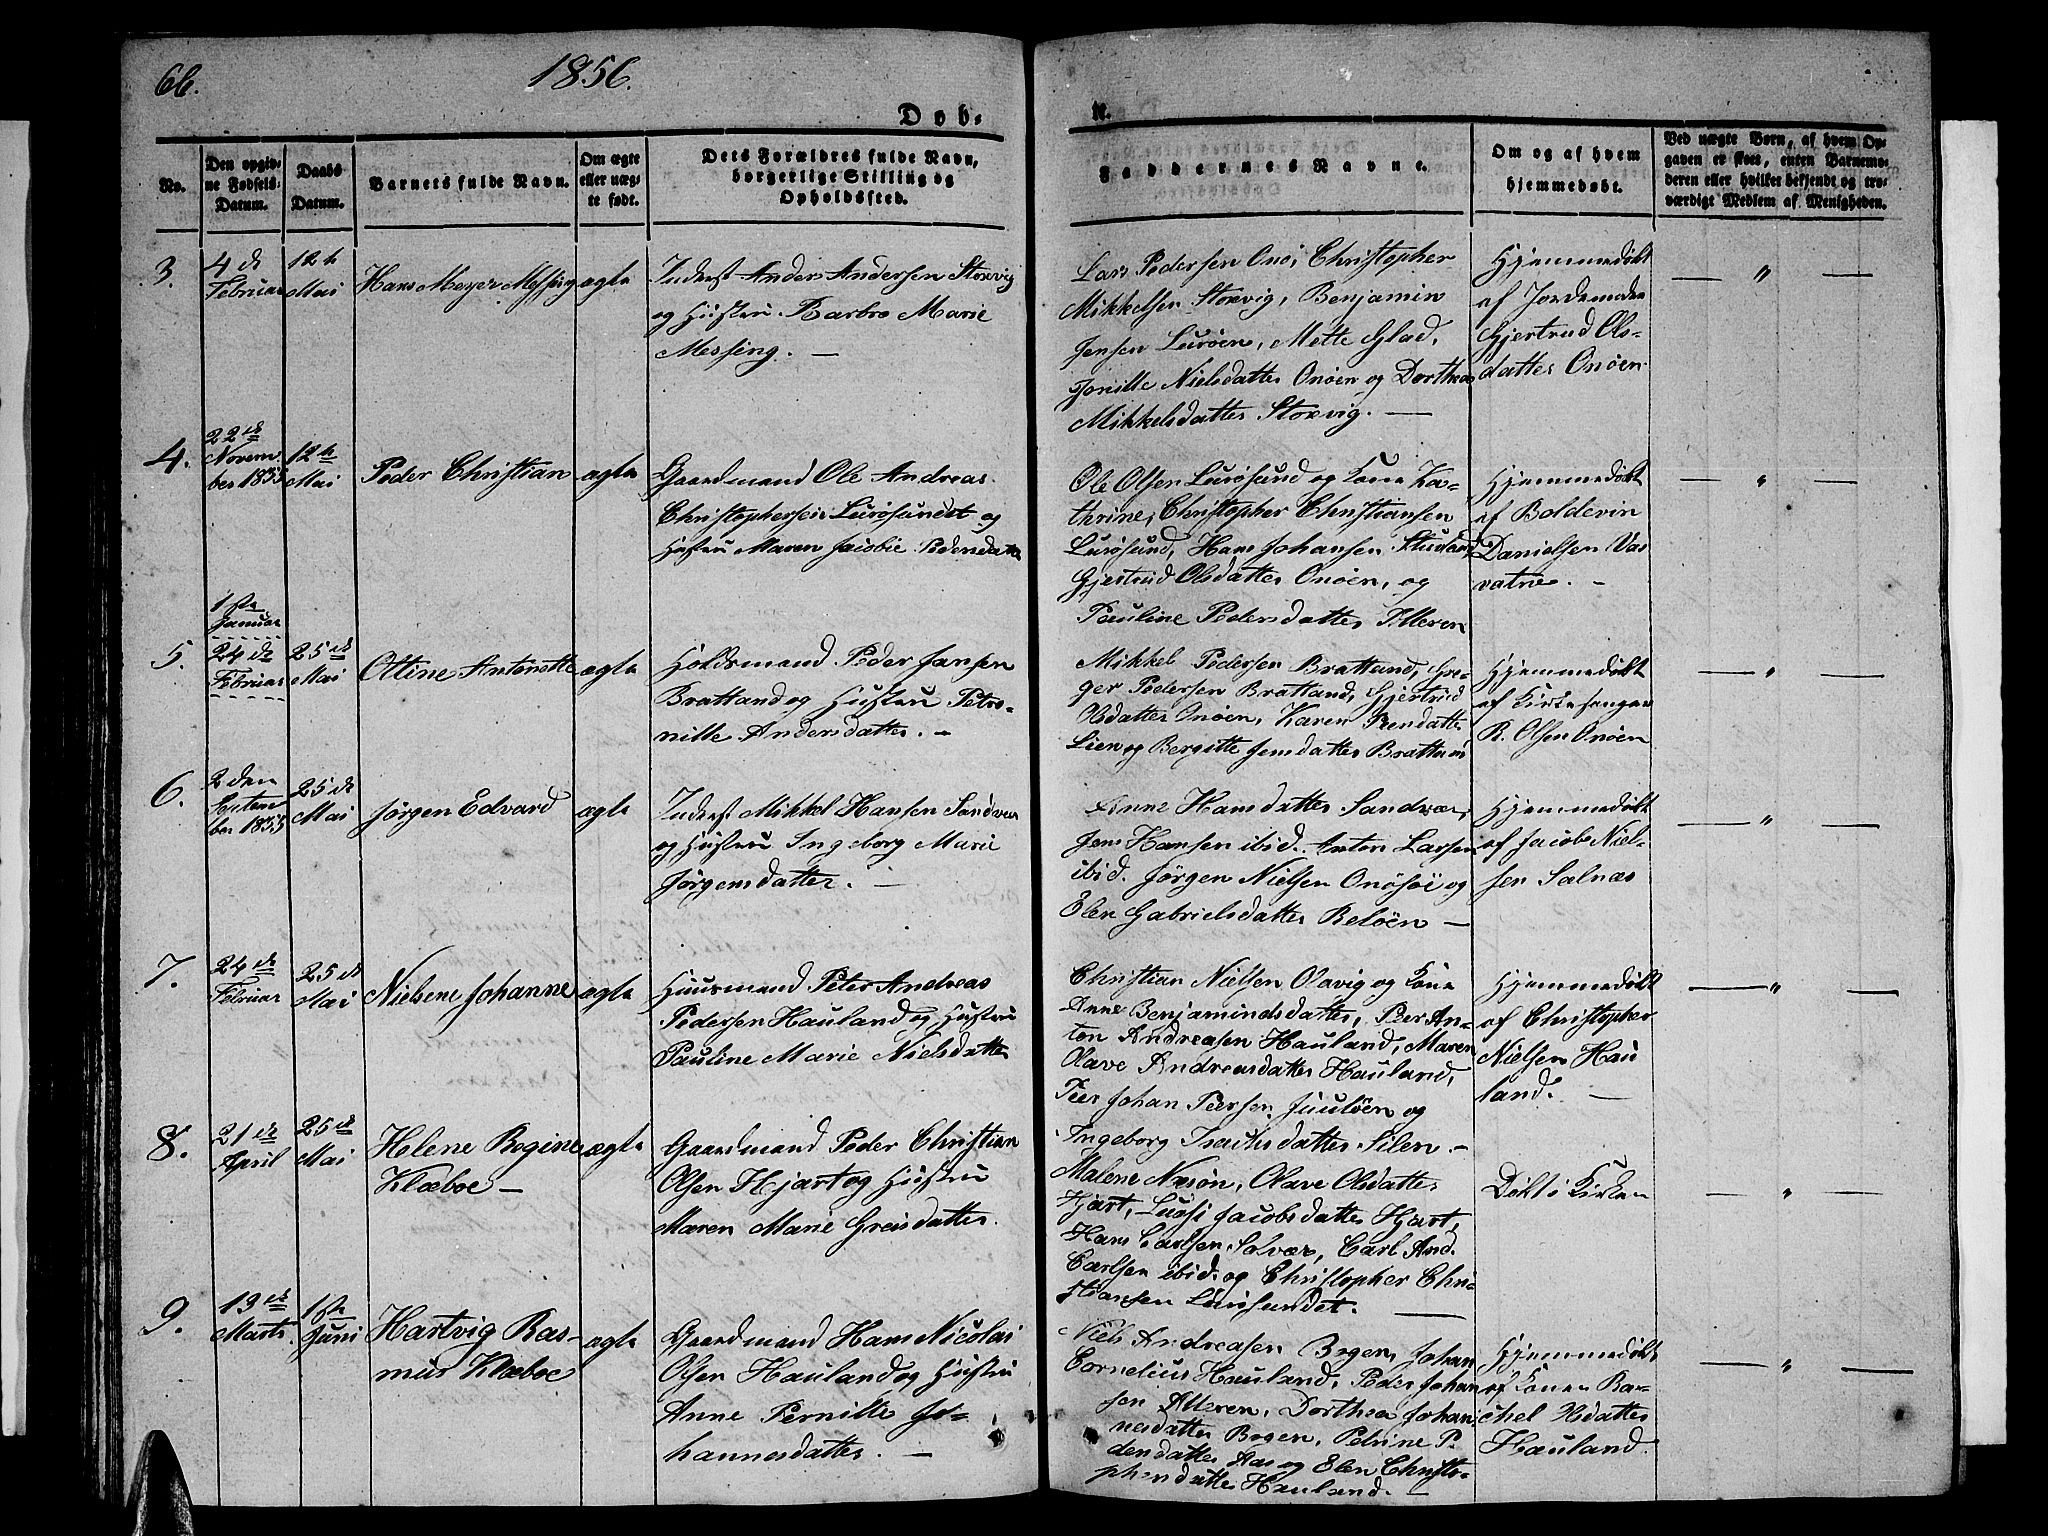 66.
1856.
Døb-
te.
No.
Den opgiv-
ne Fødsels-
Datum.
Daabs
Datum.
Barnets fulde Navn.
Om ægte
eller uæg-
te født.
Dets Forældres fulde Navn,
borgerlige Stilling og
Opholdssted.
Faddernes Navne.
Om og af hvem
hjemmedøbt.
Ved uægte Børn, af hvem Op-
gaven er skeet, enten Barnemo-
deren eller hvilket bekjendt og tro-
værdigt Medlem af Menigheden.
3.
4 de
Februar
12te
Mai
Hans Meyer Messing
ægte
Inderst Anders Andersen Storvig
og Hustru Barbro Marie
Messing. —
Lars Pedersen Onöi, Christopher
Mikkelsen Storvig, Benjamin
Jensen Luröen, Mette Glad,
Pernille Nielsdatter Onöen og Dorthea
Mikkelsdatter Storvig. —
Hjemmedøbt
af Jordemoder
Gjertrud Ols-
datter Onöen
— " —
4.
22de
Novem-
ber 1855
12te
Mai
Peder Christian
ægte
Gaardmand Ole Andreas
Christophersen Lurösundet og
Hustru Maren Jacobie Pedersdatter
Ole Olsen Lurösund og Kone Ka-
thrine, Christopher Christiansen
Lurösund, Hans Johansen Stusland,
Gjertrud Olsdatter Onöen, og
Pauline Pedersdatter Alteren
Hjemmedøbt
af Boldevin
Danielsen Vas-
vatne. —
— " —
5.
1ste
Januar
24de
Februar
25de
Mai
Ottine Antonette
ægte
Holdsmand Peder Jansen
Brattland og Hustru Petro-
nille Andersdatter. —
Mikkel Pedersen Brattland, Gre-
ger Pedersen Brattland, Gjertrud
Olsdatter Onöen, Karen Iversdatter
Lien og Bergitte Jensdatter Brattland
Hjemmedøbt
af Kirkesanger
R. Olsen Onöen
— " —
6.
2den
Septem-
ber 1855
25de
Mai
Jörgen Edvard
ægte
Inderst Mikkel Hansen Sandvær
og Hustru Ingeborg Marie
Jörgensdatter. —
Anne Hansdatter Sandvær,
Jens Hansen ibid. Anton Larsen
ibid. Jörgen Nielsen Onösöi og
Elen Gabrielsdatter Relöen —
Hjemmedøbt
af Jacob Niel-
sen Selnæs
— " —
7.
24de
Februar
25de
Mai
Nielsene Johanne
ægte
Huusmand Peter Andreas
Pedersen Hauland og Hustru
Pauline Marie Nielsdatter
Christian Nielsen Olavig og Kone
Anne Benjaminsdatter, Peer An-
ton Andreasen Hauland, Maren
Olave Andreasdatter Hauland,
Peer Johan Peersen Juulöen og
Ingeborg Isachsdatter Silen. —
Hjemmedøbt
af Christopher
Nielsen Hau-
land. —
— " —
8.
21de
April
25de
Mai
Helene Regine
Klæboe —
ægte
Gaardmand Peder Christian
Olsen Hjart og Hustru
Maren Marie Greisdatter.
Malene Næsön, Olave Olsdatter
Hjart, Lussi Jacobsdatter Hjart,
Hans Carlsen Solvær, Carl And.
Carlsen ibid. og Christopher Chri-
stiansen Lurösundet. —
Døbt i Kirken
— " —
9.
13de
Marts
1ste
Juni
Hartvig Ras-
mus Klæboe
ægte
Gaardmand Hans Nicolai
Olsen Hauland og Hustru
Anne Pernille Jo-
hannesdatter. —
Niels Andreasen Bogen, Johan
Cornelius Hauland, Peder Johan-
sen Alteren, Dorthea Johan-
nesdatter Bogen, Petrine P.
dersdatter Aas og Elen Christo-
phersdatter Hauland. —
Hjemmedøbt
af Konen Ra-
chel Hdatter
Hauland.
— " —